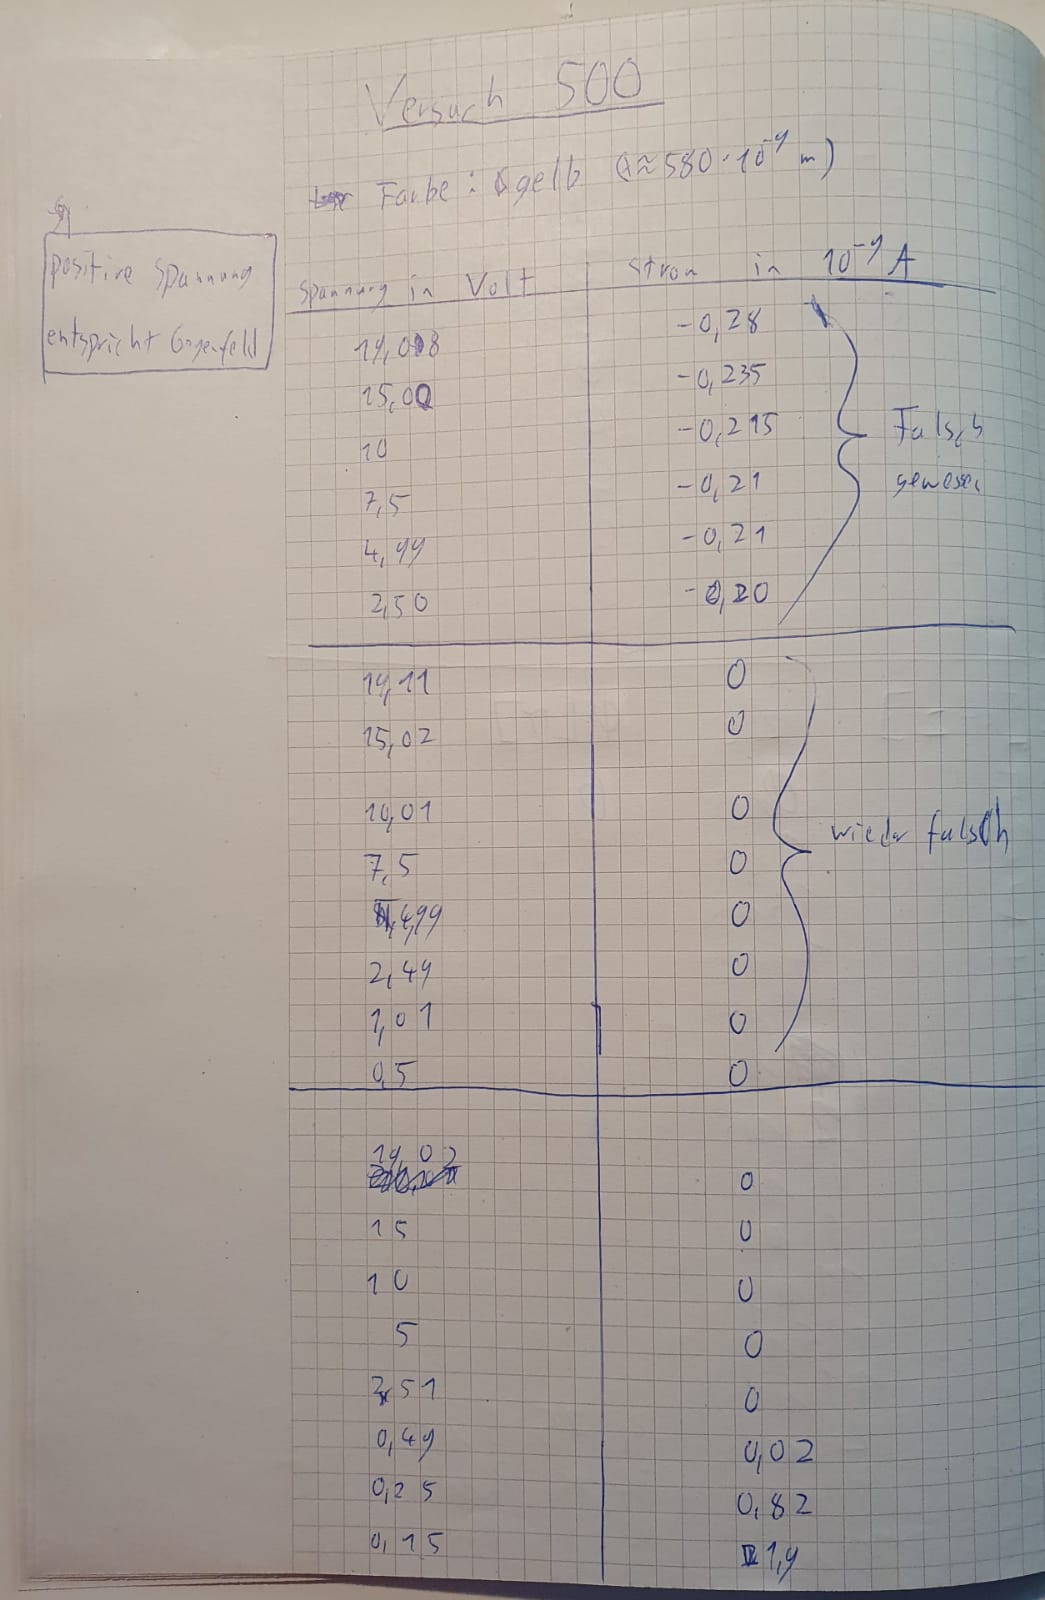 Versuch 500
Farbe: gelb (λ≈580·10⁻⁹ m)
positive Spannung
entspricht Gegenfeld
Spannung in Volt | Strom in 10⁻⁹ A
19,08 | -0,28
15,00 | -0,235
10 | -0,215
7,5 | -0,21
4,99 | -0,21
2,50 | -0,20
Falsch
gewesen
19,11 | 0
15,02 | 0
10,01 | 0
7,5 | 0
4,99 | 0
2,49 | 0
1,01 | 0
0,5 | 0
wieder falsch
19,02 | 0
15 | 0
10 | 0
5 | 0
2,51 | 0
0,49 | 0,02
0,25 | 0,82
0,15 | 1,9